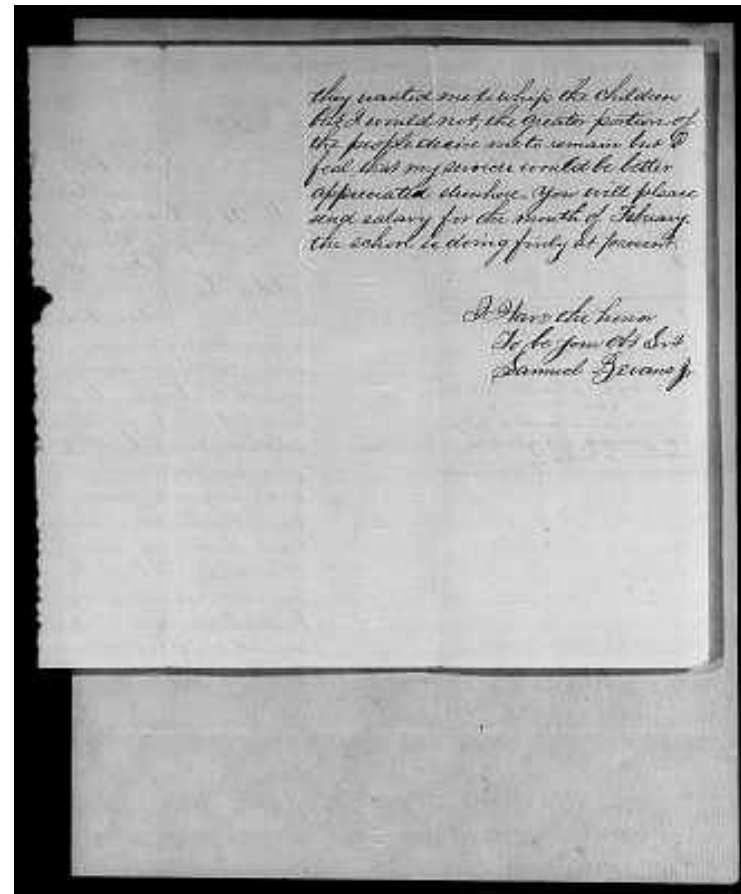 they wanted me to whip the children
but I would not, the greater portion of
the people desire me to remain but I
feel that my services would be better
appreciated elsewhere. You will please
send salary for the month of February.
the school is doing finely at present.
I Have the honor
To be your Obt Svt
Samuel Bevans Jr